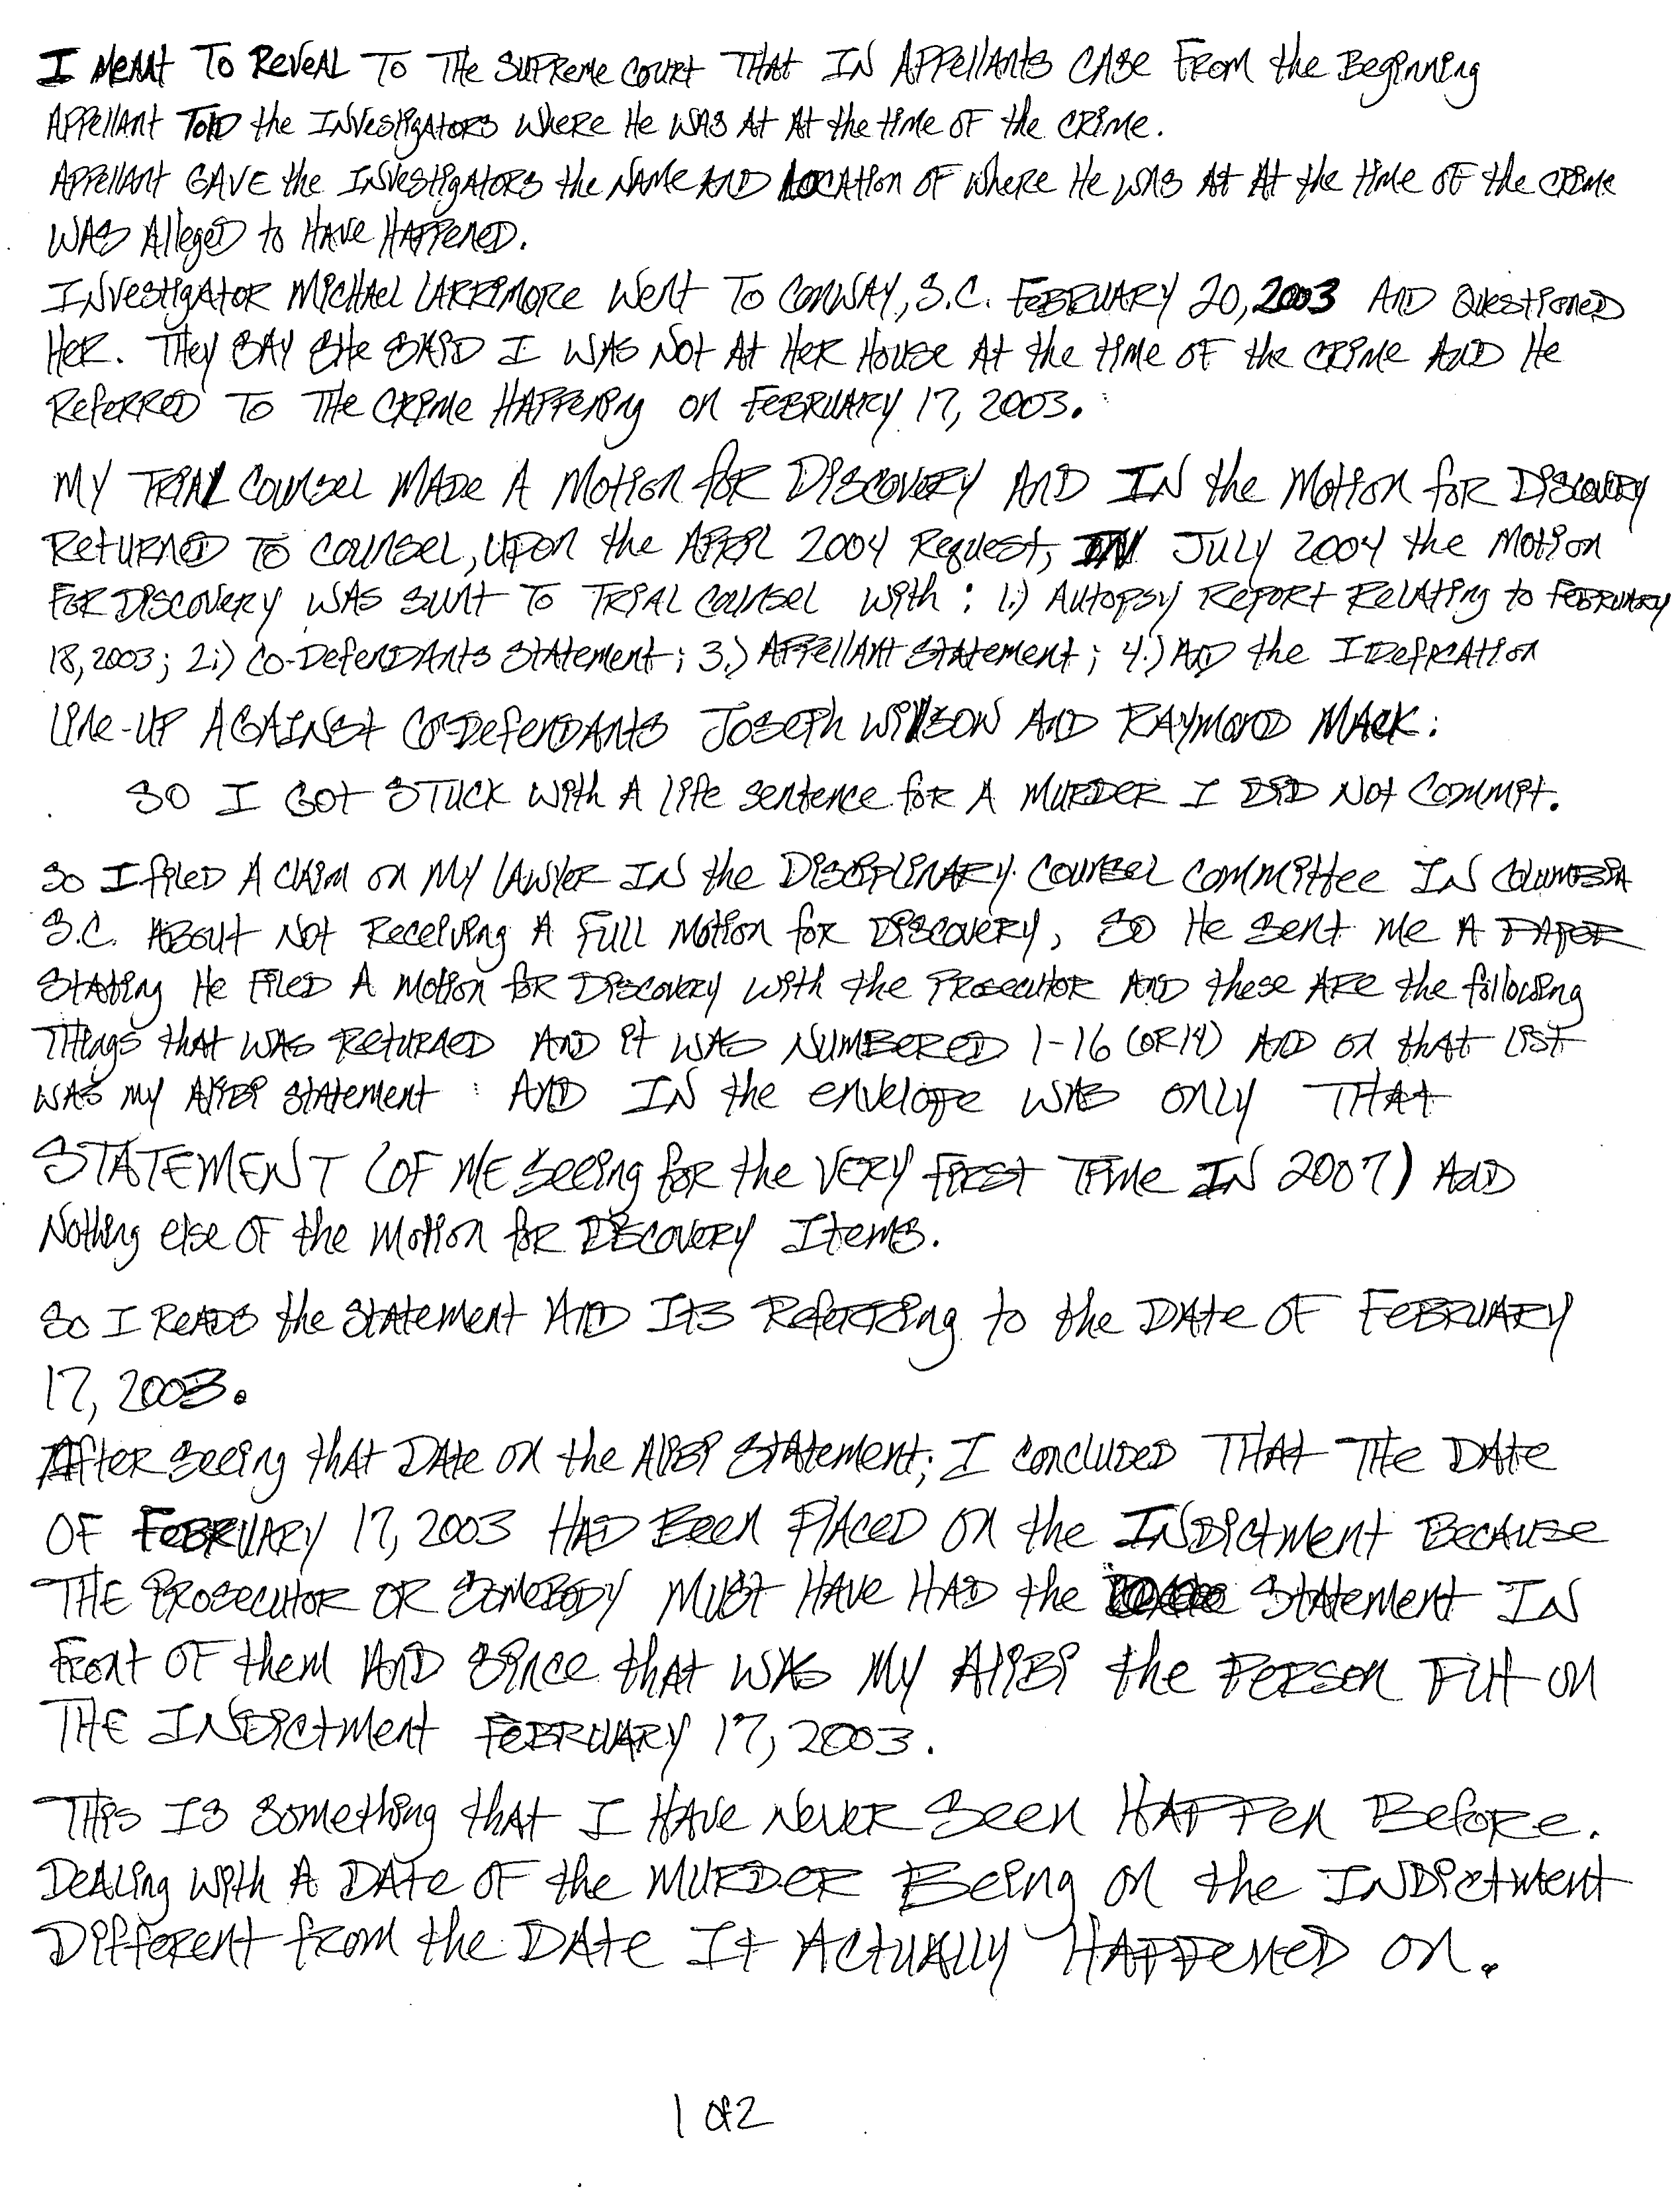 I MEANT TO REVEAL TO THE SUPREME COURT THAT IN APPELLANTS CASE FROM the Beginning
APPELLANT TOLD the INVESTIGATORS WHERE HE WAS At At the time OF the CRIME.
APPELLANT GAVE the INVESTIGATORS the NAME AND LOCATION OF WHERE HE WAS At At the time OF the CRIME
WAS Alleged to HAVE HAPPENED.
INVESTIGATOR MICHAEL LARRIMORE WENT TO CONWAY, S.C. FEBRUARY 20, 2003 AND QUESTIONED
HER. THEY SAY SHE SAID I WAS NOT AT HER HOUSE At the time OF the CRIME AND HE
REFERRED TO THE CRIME HAPPENING ON FEBRUARY 17, 2003.
MY TRIAL COUNSEL MADE A MOTION for DISCOVERY AND IN the MOTION for DISCOVERY
RETURNED TO COUNSEL, UPON the APRIL 2004 Request, IN JULY 2004 the MOTION
FOR DISCOVERY WAS SUNT TO TRIAL COUNSEL WITH: 1.) AUTOPSY REPORT RELATING to FEBRUARY
18, 2003; 2.) CO-DEFENDANTS STATEMENT; 3.) APPELLANT STATEMENT; 4.) AND the IDEFICATION
LINE-UP AGAINST CO-DEFENDANTS JOSEPH WILSON AND RAYMOND MACK:
SO I GOT STUCK WITH A LIFE SENTENCE for A MURDER I DID NOT COMMIT.
SO I filed A CLAIM ON MY LAWYER IN the DISCIPLINARY COUNSEL COMMITTEE IN COLUMBIA
S.C. ABOUT NOT RECEIVING A FULL MOTION for DISCOVERY, SO HE SENT ME A PAPER
STATING HE FILED A MOTION for DISCOVERY WITH the PROSECUTOR AND these ARE the following
THINGS that WAS RETURNED AND it WAS NUMBERED 1-16 (OR 14) AND ON that LIST
WAS my ALIBI STATEMENT : AND IN the envelope WAS ONLY THAT
STATEMENT (OF ME seeing for the VERY FIRST TIME IN 2007) AND
Nothing else OF the MOTION for DISCOVERY Items.
SO I READS the STATEMENT AND ITS REFERRING to the DATE OF FEBRUARY
17, 2003.
After seeing that DATE ON the ALIBI STATEMENT; I CONCLUDED THAT THE DATE
OF FEBRUARY 17, 2003 HAD BEEN PLACED ON the INDICTMENT BECAUSE
THE PROSECUTOR OR SOMEBODY MUST HAVE HAD the STATEMENT IN
FRONT OF them AND SINCE that WAS MY ALIBI the PERSON PUT ON
THE INDICTMENT FEBRUARY 17, 2003.
THIS IS Something that I HAVE NEVER SEEN HAPPEN BEFORE.
DEALING WITH A DATE OF the MURDER BEING ON the INDICTMENT
DIFFERENT from the DATE IT ACTUALLY HAPPENED ON.
1 of 2